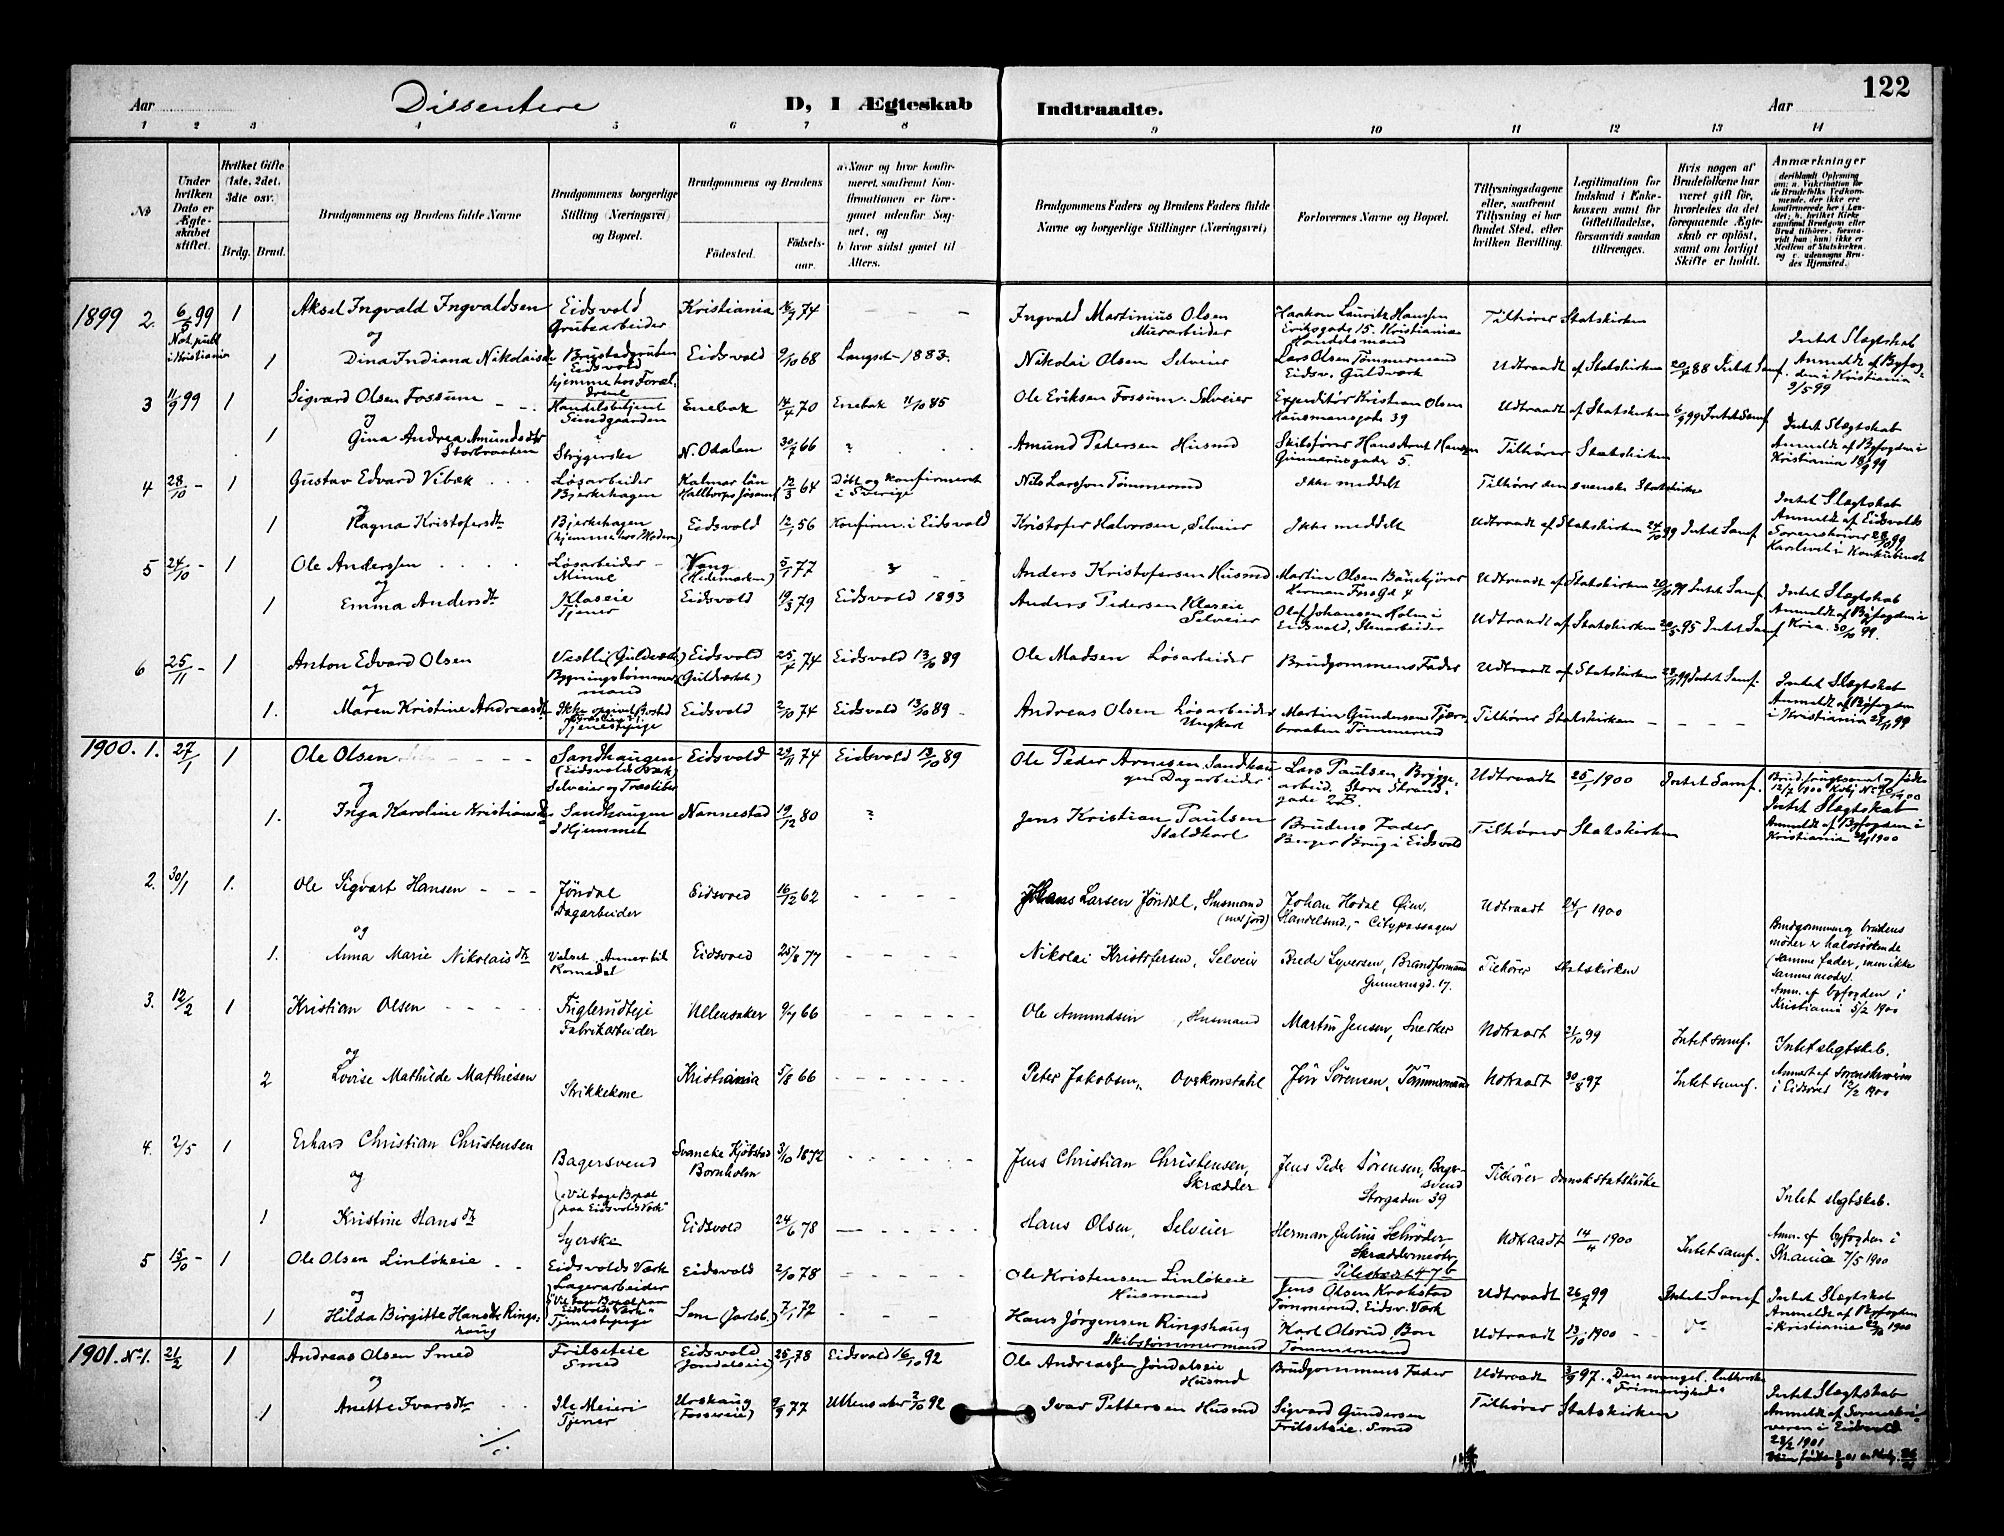 122
Aar
Dissentere
D, I Ægteskab
Indtraadte.
Aar
1 2 3 4 5 6 7 8 9 10 11 12 13 14
№
Under hvilken Dato er Ægteskabet stiftet.
Hvilket Gifte (1ste, 2det, 3die osv.)
Brdg. Brud.
Brudgommens og Brudens fulde Navne
Brudgommens borgerlige Stilling (Næringsvei) og Bopæl.
Brudgommens og Brudens
Födested.
Födselsaar.
a) Naar og hvor konfirmeret, saafremt Konfirmationen er foregaaet udenfor Sognet, og
b) hvor sidst gaaet til Alters.
Brudgommens Faders og Brudens Faders fulde Navne og borgerlige Stillinger (Næringsvei)
Forlovernes Navne og Bopæl.
Tillysningsdagene eller, saafremt Tillysning ei har fundet Sted, efter hvilken Bevilling.
Legitimation for Indskud i Enkekassen samt for Giftetilladelse, forsaavidt saadan tiltrænges.
Hvis nogen af Brudefolkene har været gift för, hvorledes da det foregaaende Ægteskab er oplöst, samt om lovligt Skifte er holdt.
Anmærkninger
1899 2. 6/5 99 1 Aksel Ingvald Ingvaldsen Eidsvold Grubearbeider Kristiania 74 Ingvald Martinius Olsen Murarbeider Haakon Lauritz Hansen Eriksgade 15. Kristiania Handelsmand Tilhører Statskirken
Not. publ i Kristiania
og
1 Dina Indiana Nikolaisdtr Eidsvold Eidsvold 9/10 68 Langset 1883. Nikolai Olsen Selveier Lars Olsen Tømmermand Eidsv. Guldværk Udtraadt af Statskirken 88 Intet Samf.
Intet Slægtskab Anmeldt af Byfogden i Kristiania 9/5 99
3 11/9 99 1 Sigvard Olsen Fossum hjemme hos Forældrene Handelsbetjent Sundgaarden Enebak 14/4 70 Enebak 11/10 85 Ole Eriksen Fossum. Selveier Expeditør Kristian Olsen Hausmansgade 39 Udtraadt af Statskirken 6/9 99 Intet Samf
og
1 Gina Andrea Amundsdtr Storbraaten Strygerske N. Odalen 66 ? Amund Pedersen Husmd Skibsfører Hans Arnt Hansen Gunnerusgade 5. Tilhører Statskirken
Intet Slægtskab Anmeldt af Byfogden i Kristiania 99
4 28/10 - 1 Gustav Edvard Vibæk Løsarbeider Bjerkehagen Kalmar län 12/3 64 Døbt og konfirmeret i Sverige Nils Larsson Tømmermd Ikke meddelt Tilhører den svenske Statskirke
og
1 Ragna Kristofersdtr Bjerkehagen (hjemme hos Moderen) Eidsvold 12/1 56 Konfirm. i Eidsvold Kristofer Halvorsen, Selveier Ikke meddelt Udtraadt af Statskirken 24/10 99 Intet Samf
Intet Slægtskab Anmeldt af Eidsvolds Sorenskriver 28/10 99
5 24/10 - 1 Ole Anderssen Løsarbeider Minne Vang (Hedemarken) 5/1 77 ? Anders Kristofersen Husmd Martin Olsen Udtraadt af Statskirken Intet Samf.
og
1 Emma Andersdtr Klaseie Tjener Eidsvold 19/3 79 Eidsvold 1893 Anders Pedersen Klaseie Selveier Olaf Johansen Holm i Eidsvold, Stenarbeider Udtraadt af Statskirken 95 Intet Samf
Intet Slægtskab Anmeldt af Byfogden i Kria. 30/10 99.
6 25/11 - 1 Anton Edvard Olsen Bygningstømmermand Eidsvold (Guldværket) 25/4 74 Eidsvold 13/10 89 Ole Madsen Løsarbeider Brudgommens Fader Udtraadt af Statskirken Intet Samf.
og
1. Maren Kristine Andreasdtr Tjenestepige Eidsvold 2/10 74 Eidsvold 13/10 89 Andreas Olsen Løsarbeider Ungkarl Martin Gundersen Tømmermd Tilhører Statskirken
Intet Slægtskab Anmeldt af Byfogden i Kristiania 99
1900. 1. 27/1 1 Ole Olsen Sandhaugen (Eidsvolds Værk) Selveier og Træsliber Eidsvold 29/11 74 Eidsvold 13/10 89 Ole Peder Arnesen, Sandhaugen Dagarbeider Lars Paulsen, Bryggearbeid. Store Strandgade 2B. Udtraadt 25/1 1900 Intet Samf.
og
1. Inga Karoline Kristiansdtr Sandhaugen I Hjemmet Nannestad 19/12 80 ? Jens Kristian Paulsen Staldkarl Brudens Fader Berger Brug i Eidsvold Tilhører Statskirken
Intet Slægtskab Anmeldt af Byfogden i Kristiania 1900
2. 30/1 1. Ole Sigvart Hansen Jøndal Dagarbeider Eidsvold 16/12 62 Hans Larsen Jøndal, Husmand (med jord) Johan Hodal Øien, Handelsmd., Citypassagen Udtraadt 24/1 1900
og
1. Anna Marie Nikolaisdtr Eidsvold 25/8 77 Nikolai Kristofersen, Selveier Brede Syversen, Brandformand Gunnerusgd. 17. Tilhører Statskirken
Brudgommen og brudens moder er halvsøskende (samme fader, men ikke samme moder). Anm. af byfogden i Kristiania 5/2 1900
3. 12/2 1 Kristian Olsen Fabrikarbeider Ullensaker 66 Ole Amundsen, Husmand Martin Jensen, Snekker Udtraadt 21/10 99 Intet samf.
og
2 Lovise Mathilde Mathisen Strikkekone Kristiania 5/8 66 Peter Jakobsen, Overkonstabl Jörg. Sörensen, Tömmermand Udtraadt 30/8 97 Intet samf.
Intet slegtskab. Anmeldt af Sorenskriveren i Eidsvold 12/2 1900
4. 2/5 1 Erhard Christian Christensen Bagersvend Svaneke Kjöbstad Bornholm 3/10 1872 Jens Christian Christensen, Skrædder Jens Peder Sørensen, Bagersvend Storgaden 39 Tilhører dansk statskirke
og
"Vil tage Bopæl paa Eidsvolds Værk"
1 Kristine Hansdtr Syerske Eidsvold 24/6 78 Hans Olsen, Selveier Herman Julius Schrøder, Skræddermester Pilestrædet 47b Udtraadt 14/4 1900 Intet samf.
Intet slegtskab. Anm. af byfogden i Krania 7/5 1900
5 15/10 - 1 Ole Olsen Linløkeie Eidsvolds Værk Lagerarbeider Eidsvold 2/10 78 Ole Kristensen Linløkeie Husmand Jens Olsen Krokstad Tømmermd. Eidsv. Værk Udtraadt 26/7 99 Intet Samf.
og
"Vil tage Bopæl paa Eidsvolds Værk"
1 Hilda Birgitte Hansdtr Ringshaug Tjenestepige Sem (Jarlsb.) 7/1 72 Hans Jørgensen Ringshaug Skibstømmermand Karl Olsrud Bon Tømmermand Udtraadt 13/10 1900 do
Intet Slægtskab Anmeldt af Byfogden i Kristiania 1900
1901. No 1. 21/2 1 Andreas Olsen Smed Frilseteie Smed Eidsvold Jøndalseie 25/1 78 Eidsvold 16/10 92 Ole Andreassen Jøndalseie Husmd Brudgommens Fader Udtraadt 3/9 97. "Den evangel. lutherske Frimenighed"
og
1 Anette Ivarsdtr Ile Meieri Tjener Urskoug (Fosseeie) 9/9 77 Ullensaker 2/10 92 Ivar Pettersen Husmd Sigvard Gundersen Frilseteie. Smed Tilhører Statskirken
Intet Slægtskab Anmeldt af Sorenskriveren i Eidsvold 23/2 1901